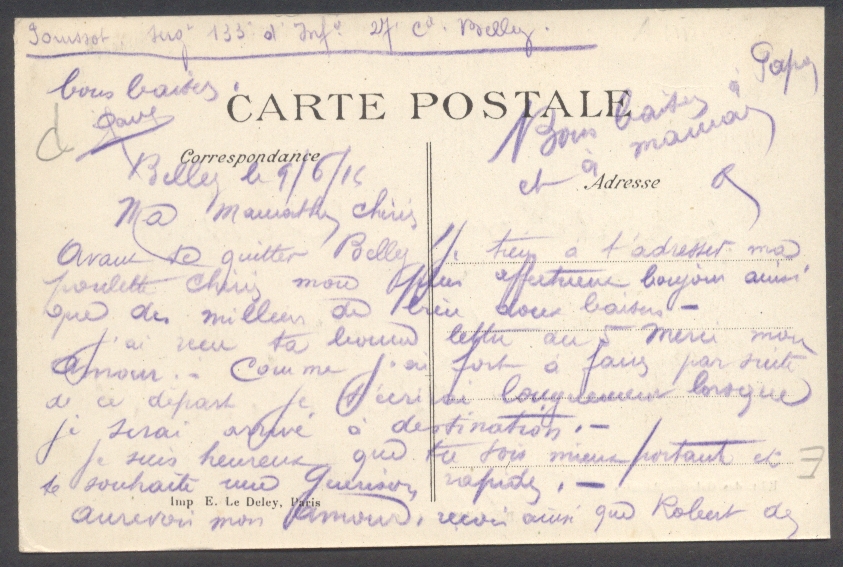 sergt 133e d'Infie 27e Cie Belley.
bons baisers.
Papa
CARTE POSTALE
Bons baisers à
et à maman
Correspondance
Adresse
Belley le 9/6/16
Ma chérie
Avant de quitter Belley je tiens à t'adresser ma
poulette chérie mon plus affectueux bonjour ainsi
que des milliers de bien doux baisers -
J'ai reçu ta bonne lettre du 5 Merci mon
Amour. - Comme j'ai fort à faire par suite
de ce départ je t'écrirai longuement lorsque
je serai arrivé à destination. -
Je suis heureux que tu sois mieux portant et
te souhaite une Guérison rapide. -
Imp E. Le Deley, Paris
Aurevoir mon Amour, reçois ainsi que Robert de